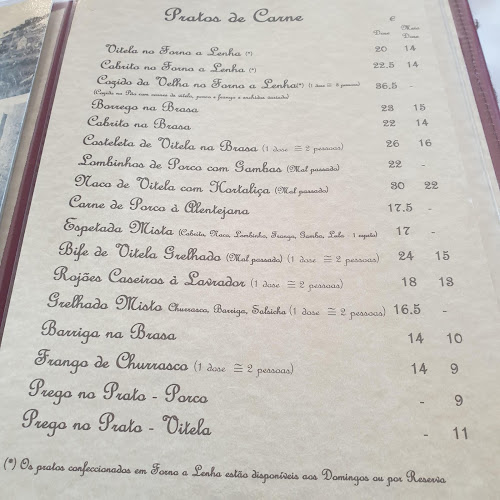 Pratos de Carne
€
Dose Meia Dose
Vitela no Forno a Lenha (*) 20 14
Cabrito no Forno a Lenha (*) 22.5 14
Cozido da Velha no Forno a Lenha(*) (1 dose ≅ 2 pessoas) 36.5 -
Borrego na Brasa 23 15
Cabrito na Brasa 22 14
Costeleta de Vitela na Brasa (1 dose ≅ 2 pessoas) 26 16
Lombinhos de Porco com Gambas (Mal passado) 22 -
Naco de Vitela com Hortaliça (Mal passado) 30 22
Carne de Porco à Alentejana 17.5 -
Espetada Mista (Cabrito, Naco, Lombinho, Frango, Gamba, Lula 1 espeto) 17 -
Bife de Vitela Grelhado (Mal passado) (1 dose ≅ 2 pessoas) 24 15
Rojões Caseiros à Lavrador (1 dose ≅ 2 pessoas) 18 13
Grelhado Misto Churrasco, Barriga, Salsicha (1 dose ≅ 2 pessoas) 16.5 -
Barriga na Brasa 14 10
Frango de Churrasco (1 dose ≅ 2 pessoas) 14 9
Prego no Prato - Porco - 9
Prego no Prato - Vitela - 11
(*) Os pratos confeccionados em Forno a Lenha estão disponíveis aos Domingos ou por Reserva